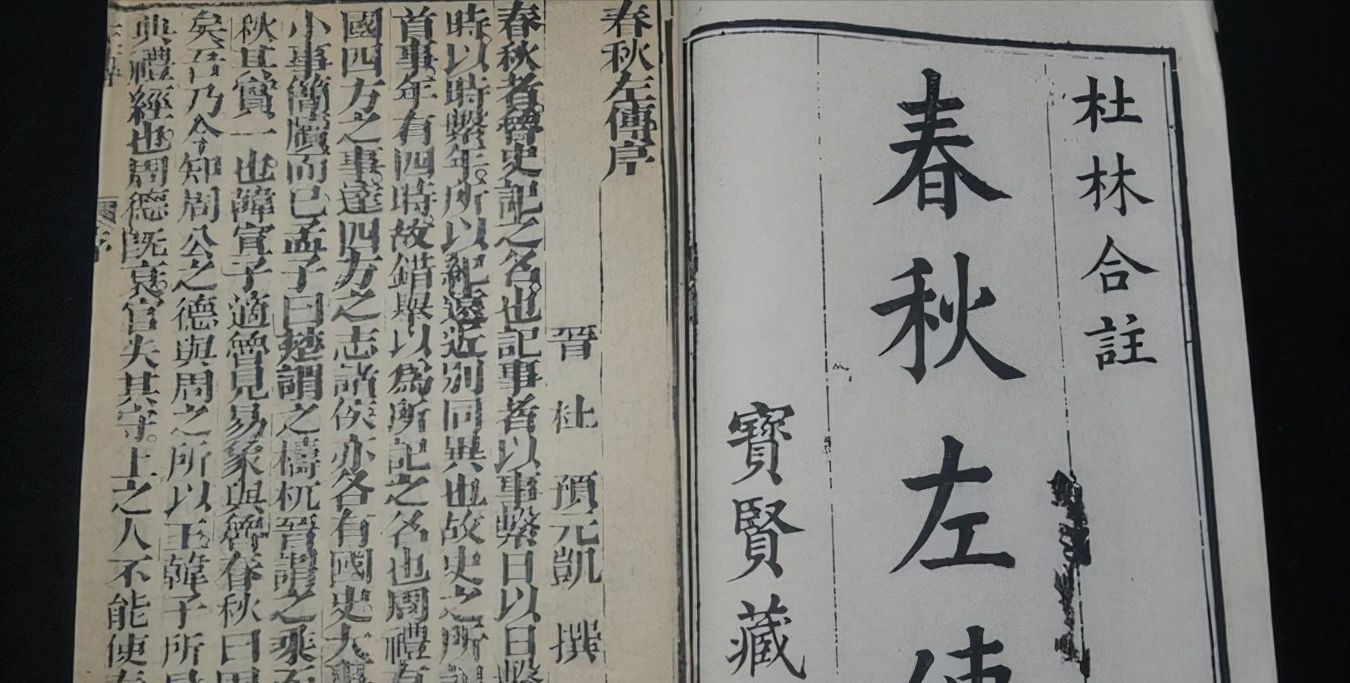 杜林合註
春秋左傳
寶賢藏
春秋左傳序
晉杜預元凱撰
春秋者魯史記之名也記事者以事繫日以日繫
時以時繫年所以紀遠近別同異也故史之所記
首事年有四時故錯舉以為所記之名也周禮有
國四方之事達四方之志諸侯亦各有國史大事
小事簡牘而已孟子曰楚謂之檮杌晉謂之乘而
秋其實一也韓宣子適魯見易象與魯春秋曰周
矣吾乃今知周公之德與周之所以王韓子所見
典禮經也周德既衰官失其守。上之人不能使春
序